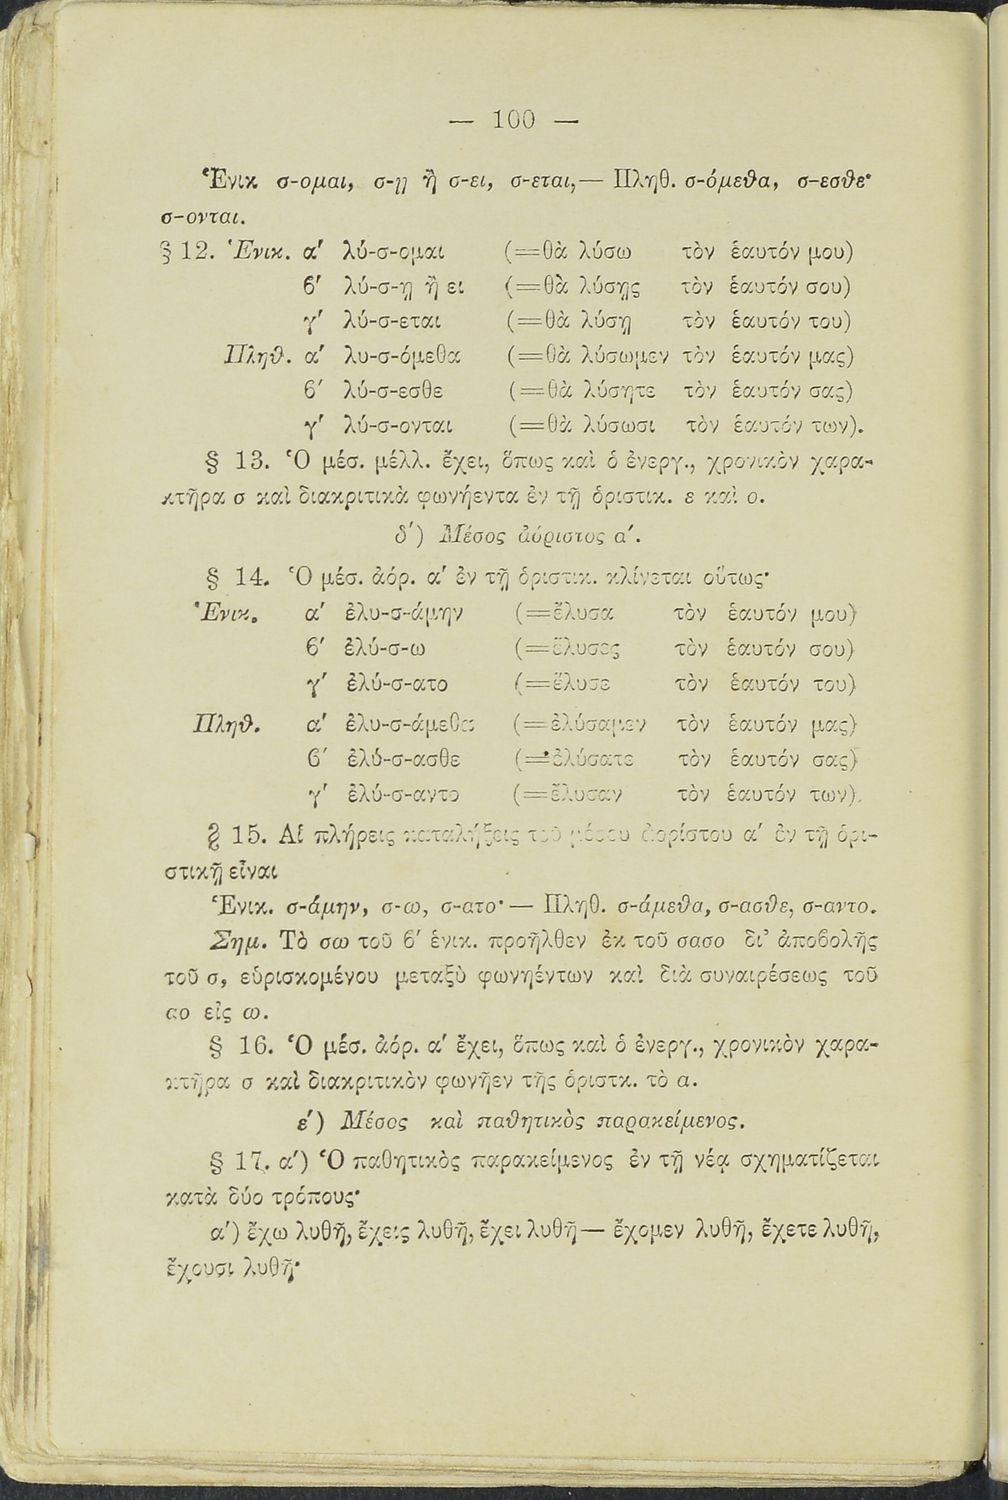 — 100 —
Ἑνικ. σ-ομαι, σ-ῃ ἢ σ-ει, σ-εται,— Πληθ. σ-όμεθα, σ-εσθε·
σ-ονται.
§ 12. Ἑνικ. α′ λύ-σ-ομαι (=θὰ λύσω τὸν ἑαυτόν μου)
β′ λύ-σ-ῃ ἢ ει (=θὰ λύσῃς τὸν ἑαυτόν σου)
γ′ λύ-σ-εται (=θὰ λύσῃ τὸν ἑαυτόν του)
Πληθ. α′ λυ-σ-όμεθα (=θὰ λύσωμεν τὸν ἑαυτόν μας)
β′ λύ-σ-εσθε (=θὰ λύσητε τὸν ἑαυτόν σας)
γ′ λύ-σ-ονται (=θὰ λύσωσι τὸν ἑαυτόν των).
§ 13. Ὁ μέσ. μέλλ. ἔχει, ὅπως καὶ ὁ ἐνεργ., χρονικὸν χαρα-
κτῆρα σ καὶ διακριτικὰ φωνήεντα ἐν τῇ ὁριστικ. ε καὶ ο.
δ′) Μέσος ἀόριστος α′.
§ 14. Ὁ μέσ. ἀόρ. α′ ἐν τῇ ὁριστικ. κλίνεται οὕτως·
Ἑνικ. α′ ἐλυ-σ-άμην (=ἔλυσα τὸν ἑαυτόν μου)
β′ ἐλύ-σ-ω (=ἔλυσες τὸν ἑαυτόν σου)
γ′ ἐλύ-σ-ατο (=ἔλυσε τὸν ἑαυτόν του)
Πληθ. α′ ἐλυ-σ-άμεθα (=ἐλύσαμεν τὸν ἑαυτόν μας)
β′ ἐλύ-σ-ασθε (=ἐλύσατε τὸν ἑαυτόν σας)
γ′ ἐλύ-σ-αντο (=ἔλυσαν τὸν ἑαυτόν των).
§ 15. Αἱ πλήρεις καταλήξεις τοῦ μέσου ἀορίστου α′ ἐν τῇ ὁρι-
στικῇ εἶναι
Ἑνικ. σ-άμην, σ-ω, σ-ατο·— Πληθ. σ-άμεθα, σ-ασθε, σ-αντο.
Σημ. Τὸ σω τοῦ β′ ἑνικ. προῆλθεν ἐκ τοῦ σασο δι’ ἀποβολῆς
τοῦ σ, εὑρισκομένου μεταξὺ φωνηέντων καὶ διὰ συναιρέσεως τοῦ
αο εἰς ω.
§ 16. Ὁ μέσ. ἀόρ. α′ ἔχει, ὅπως καὶ ὁ ἐνεργ., χρονικὸν χαρα-
κτῆρα σ καὶ διακριτικὸν φωνῆεν τῆς ὁριστκ. τὸ α.
ε′) Μέσος καὶ παθητικὸς παρακείμενος.
§ 17. α′) Ὁ παθητικὸς παρακείμενος ἐν τῇ νέᾳ σχηματίζεται
κατὰ δύο τρόπους·
α′) ἔχω λυθῆ, ἔχεις λυθῆ, ἔχει λυθῆ— ἔχομεν λυθῆ, ἔχετε λυθῆ,
ἔχουσι λυθῆ·